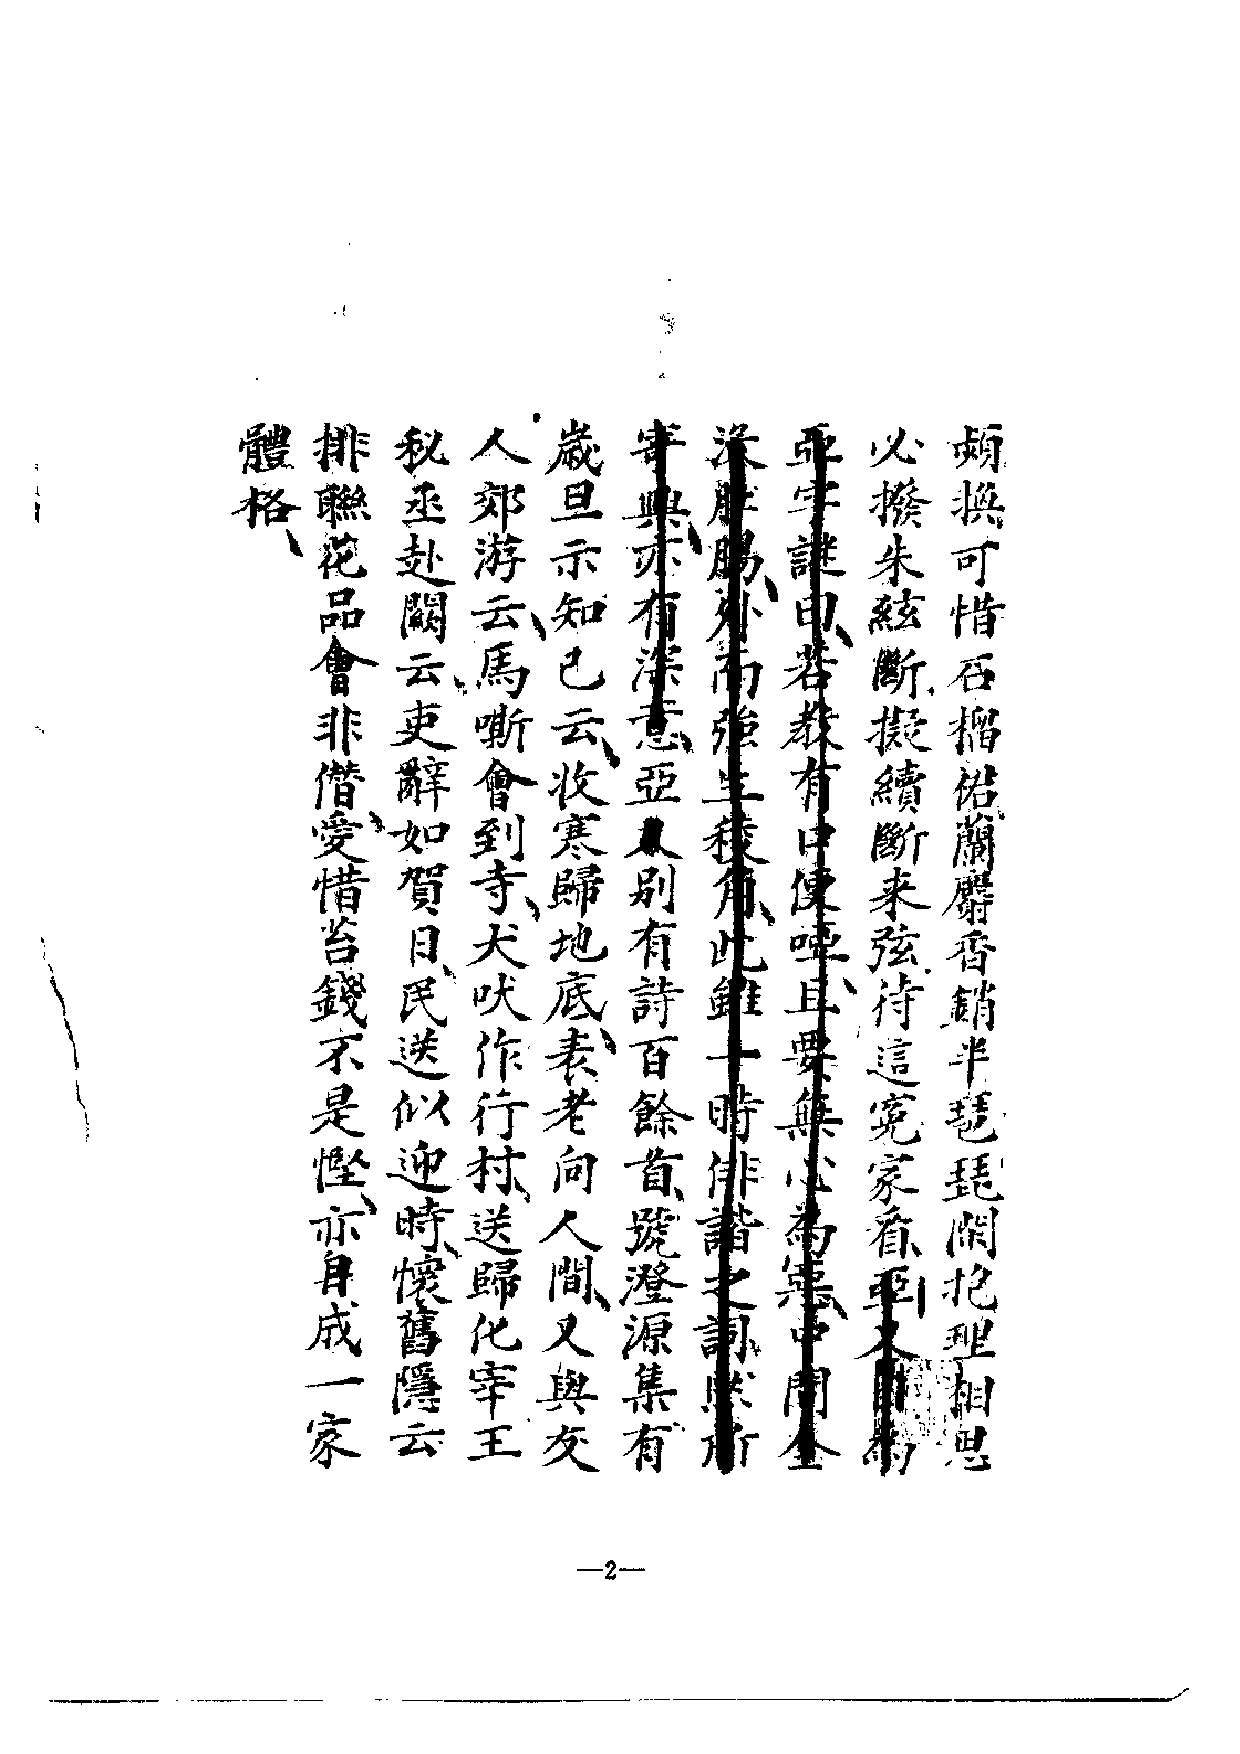 頻換可惜石榴裙蘭麝香銷半琵琶閑抱理相思
必撥朱絃斷擬續斷来弦待這冤家看亞又自為
亞字謎曰若教有口便啞且要無心為惡中間全
没肚腸外面強生稜角此雖一時俳諧之詞然所
寄興亦有深意亞又別有詩百餘首號澄源集有
歲旦示知已云收寒歸地底表老向人間又與友
人郊游云馬嘶曾到寺犬吠作行村送歸化宰王
秘丞赴闕云吏辭如賀日民送似迎時懷舊隱云
排聯花品曾非僭愛惜苔錢不是慳亦自成一家
體格
—2—